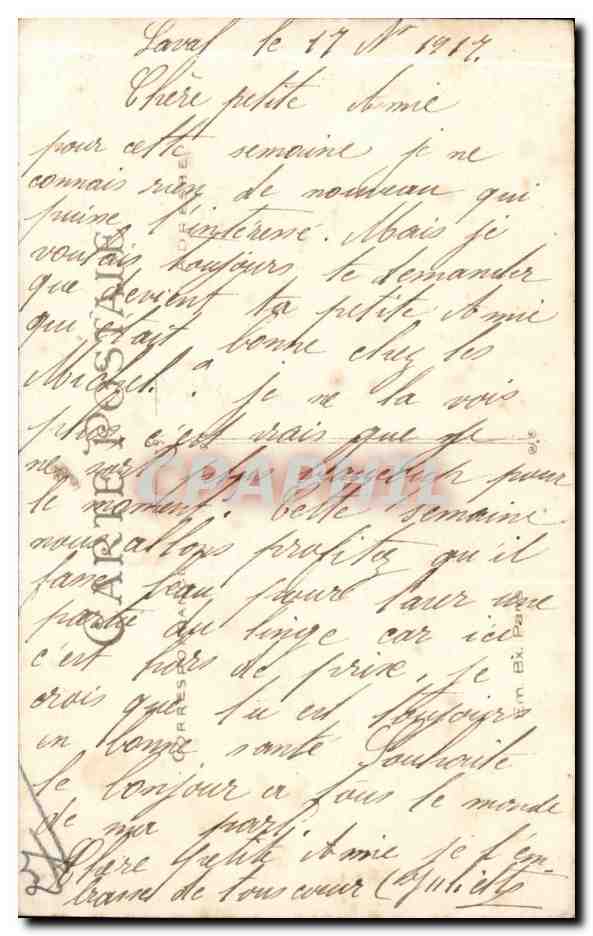 Laval le 17 Nr 1917.
Chère petite Amie
pour cette semaine je ne
connais rien de nouveau qui
puisse l'intéressé. Mais je
voulais toujours te demander
que devient ta petite Amie
qui était bonne chez les
Michel. ? je ne la vois
plus c'est vrais que je
ne sort plus pour
le moment. Cette semaine
nous allons profitez qu'il
fasse beau pour laver une
partie du linge car ici
c'est hors de prix, je
crois que tu est toujours
en bonne santé Souhaite
le bonjour a tous le monde
de ma part.
Chère petite Amie je t'em
brasse de tous cœur Juliette
CARTE POSTALE
CORRESPONDANCE
ADRESSE
Em. Bx. Paris
CPAPHIL